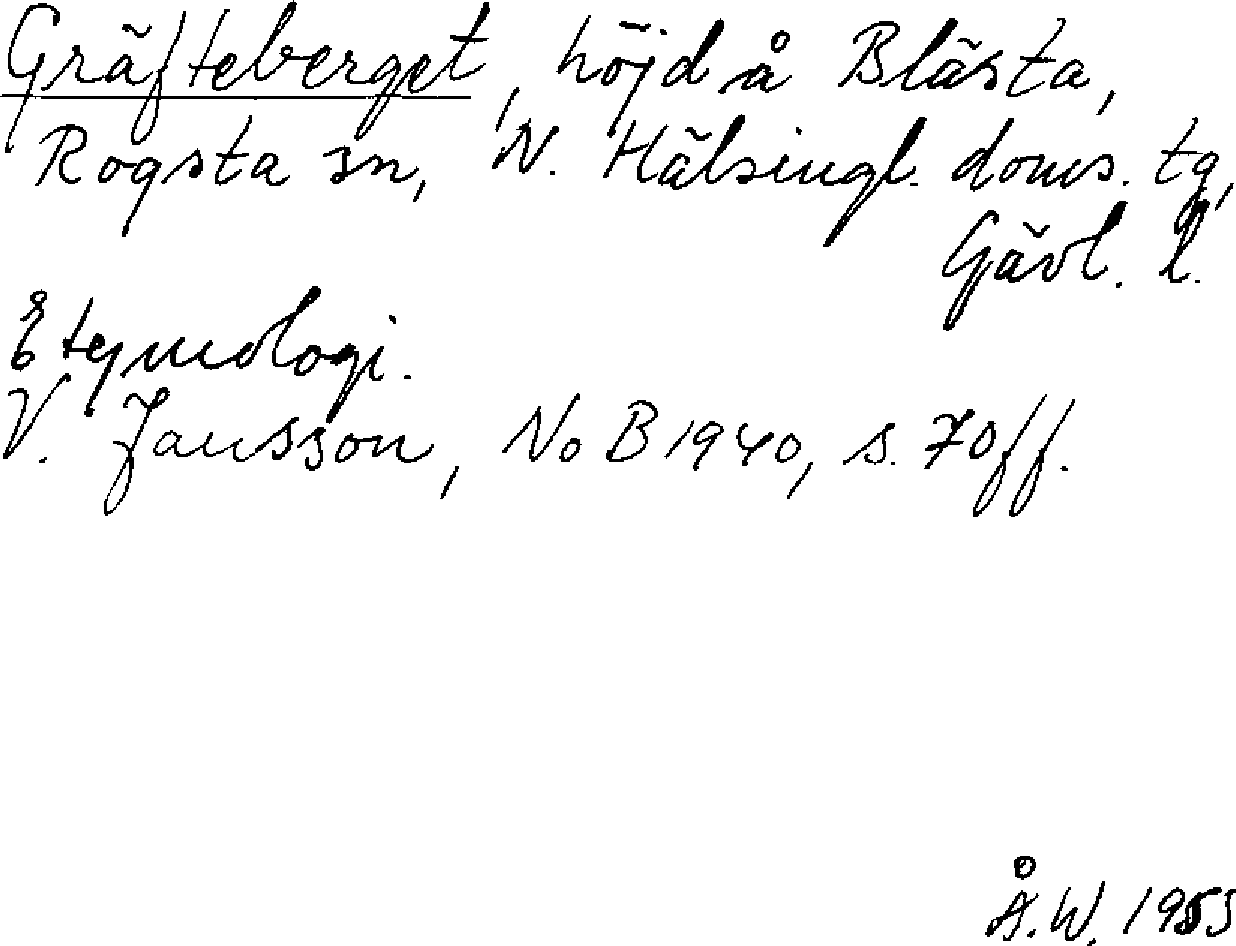 Gräfteberget, höjd å Blästa,
Rogsta sn, N. Hälsingl. doms. tg,
Gävl. l.
Etymologi.
V. Jansson, NoB 1940, s. 70ff.
Å.W. 1953